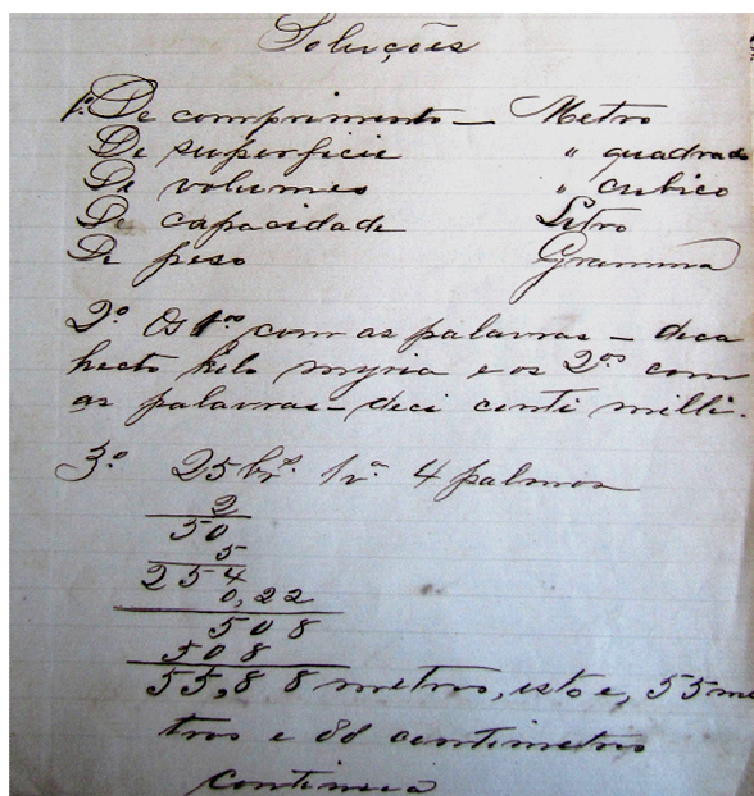 Soluções
1º De comprimento — Metro
De superficie " quadrado
De volumes " cubico
De capacidade Litro
De peso Gramma
2º Os 1ºs com as palavras — deca
hecto kilo myria e os 2ºs com
as palavras — deci centi milli.
3º 25 brs. 1 vª 4 palmos
2
50
5
254
0,22
508
508
55,88 metros, isto e, 55 me
tros e 88 centimetros
continua